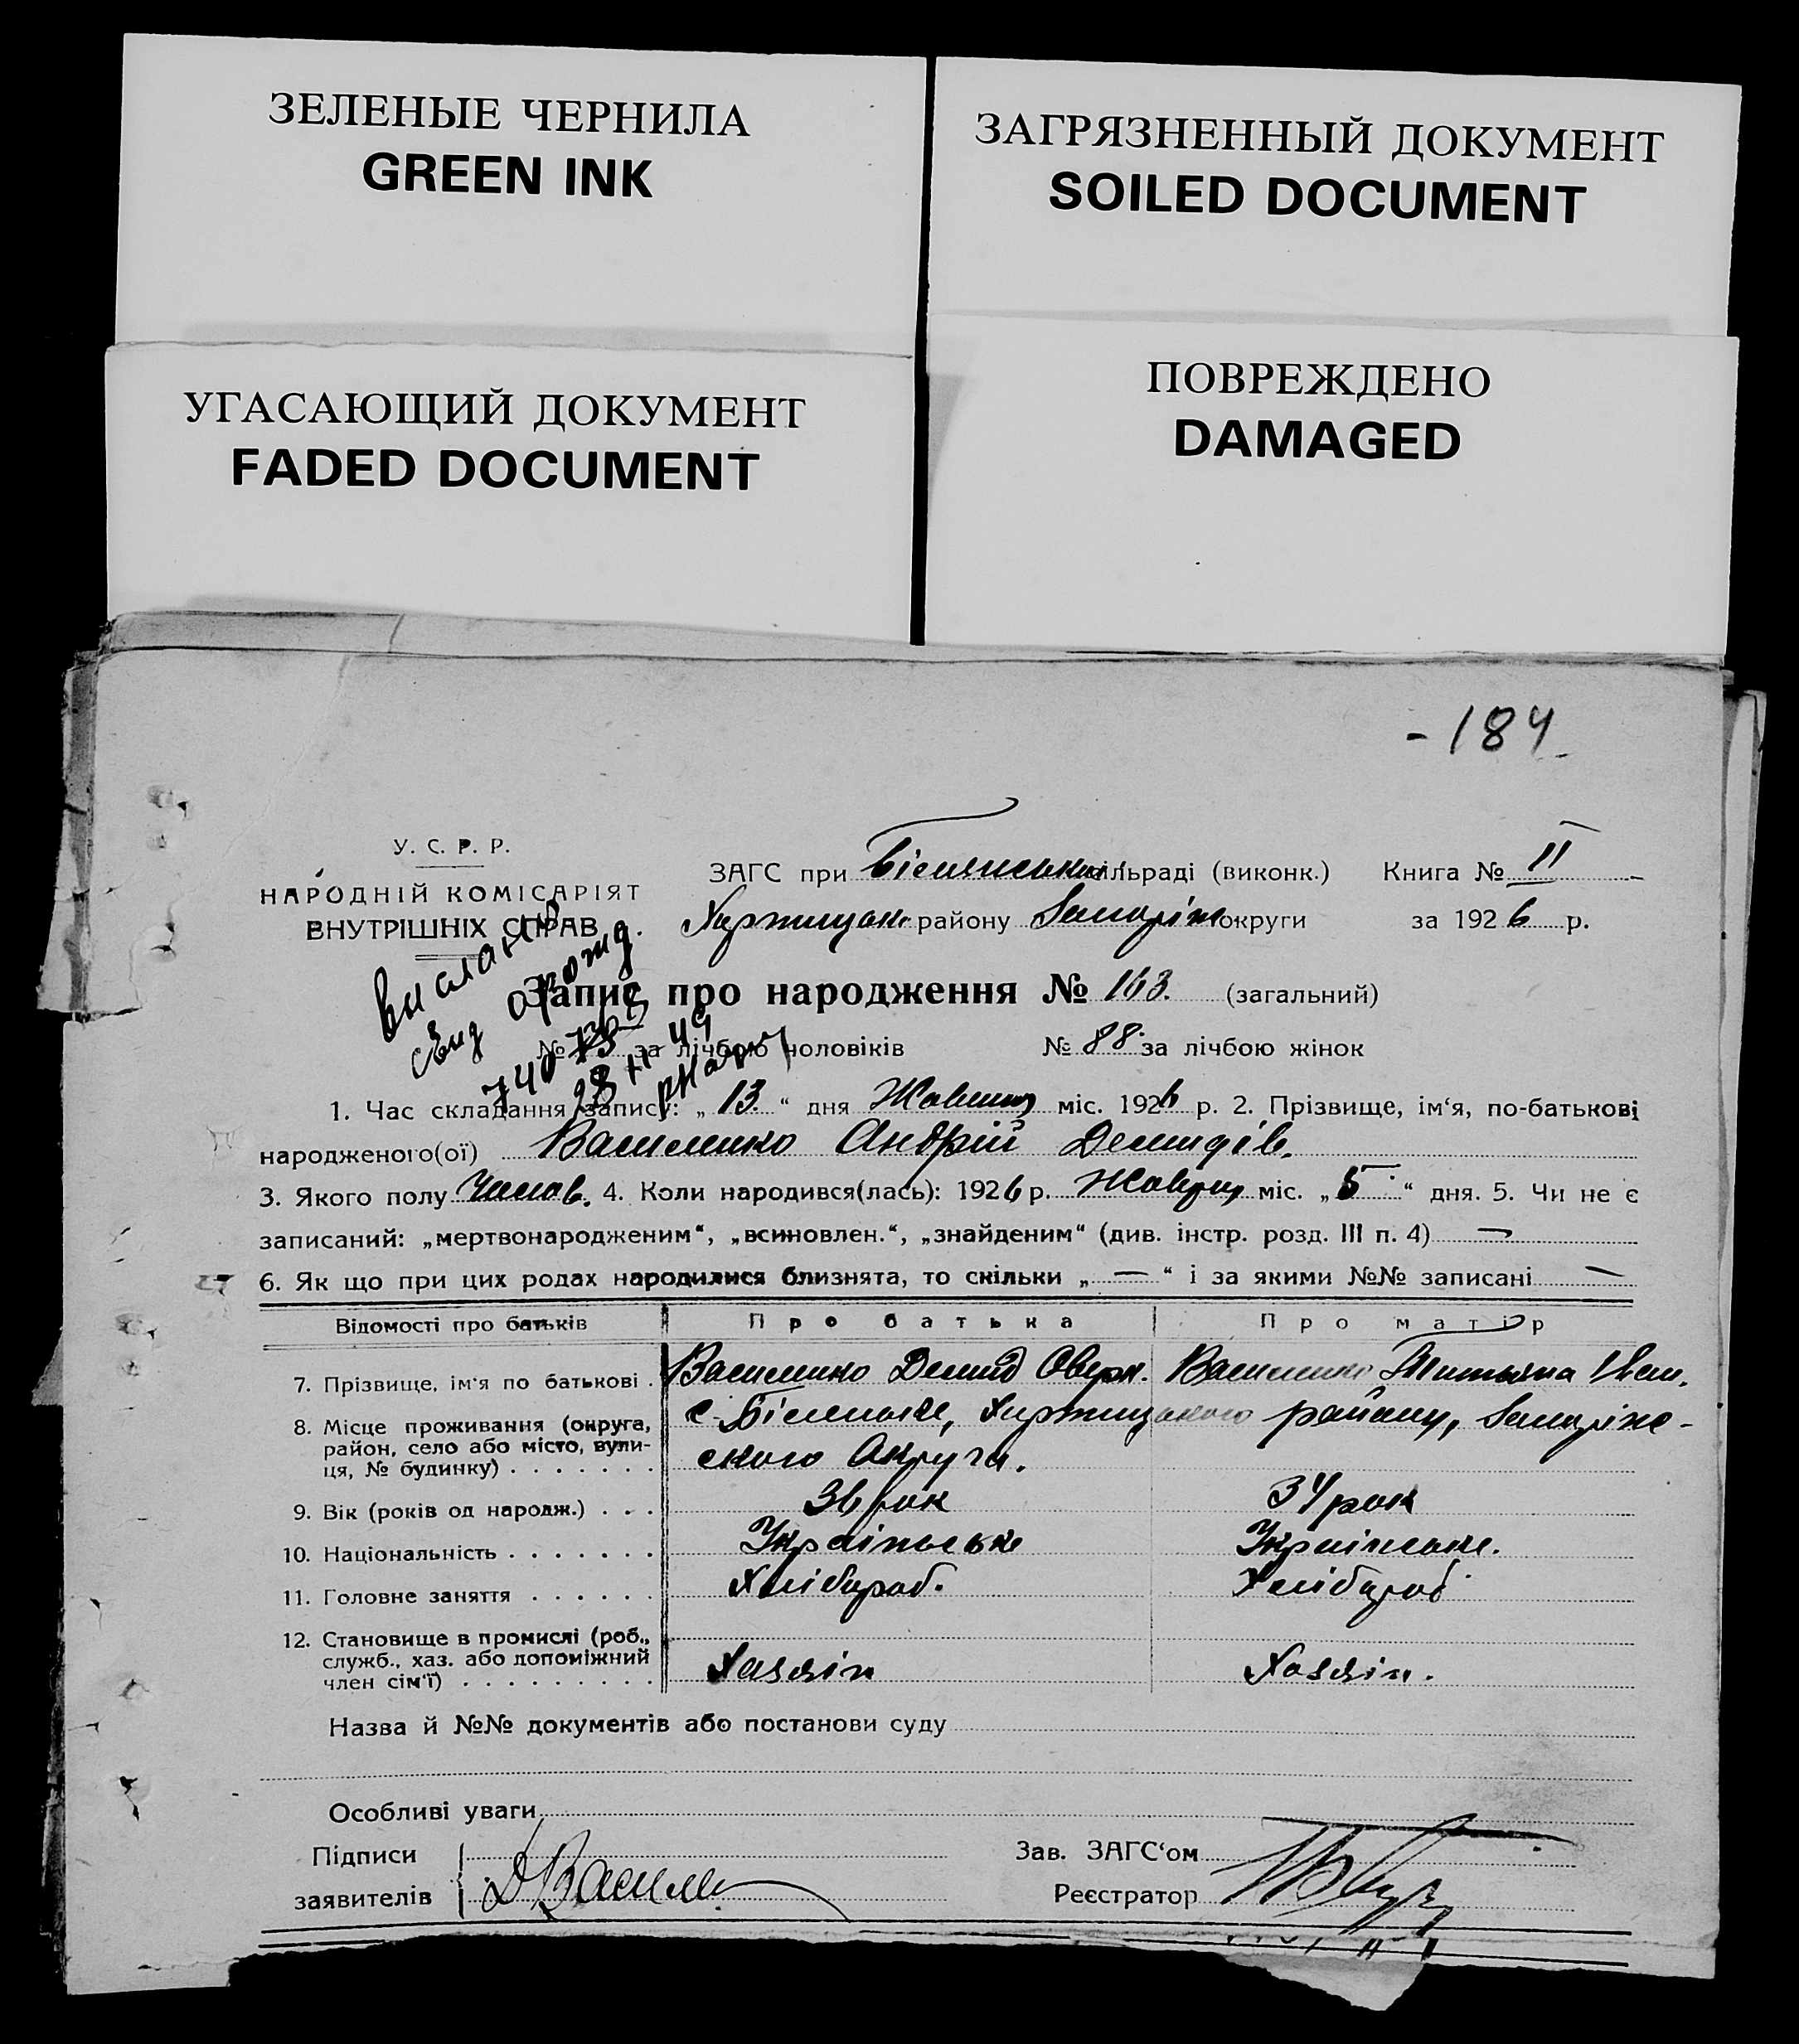 ЗЕЛЕНЫЕ ЧЕРНИЛА
GREEN INK
ЗАГРЯЗНЕННЫЙ ДОКУМЕНТ
SOILED DOCUMENT
УГАСАЮЩИЙ ДОКУМЕНТ
FADED DOCUMENT
ПОВРЕЖДЕНО
DAMAGED
-184
У. С. Р. Р.
НАРОДНІЙ КОМІСАРІЯТ
ВНУТРІШНІХ СПРАВ
ЗАГС при сільраді (виконк.) Книга № II
району округи за 1926 р.
Запис про народження № 163. (загальний)
№ за лічбою чоловіків № 88 за лічбою жінок
1. Час складання запису: „13“ дня Жовтня міс. 1926 р. 2. Прізвище, ім‘я, по-батькові
народженого(ої) Василенко Андрій Демидів.
3. Якого полу Чолов. 4. Коли народився(лась): 1926 р. Жовтня міс. „5“ дня. 5. Чи не є
записаний: „мертвонародженим“, „всиновлен.“, „знайденим“ (див. інстр. розд. III п. 4) —
6. Як що при цих родах народилися близнята, то скільки „—“ і за якими №№ записані —
Відомості про батьків Про батька Про матір
7. Прізвище, ім‘я по батькові . Василенко Демид Оверк. Василенко Титьяна Іван.
8. Місце проживання (округа,
район, село або місто, вули-
ця, № будинку) . . . . . . .
с. Біленьке, Хортицького району, Запоріж-
ского Округа.
9. Вік (років од народж.) . . . 36 рок 34 рок
10. Національність . . . . . . . Українське Українське.
11. Головне заняття . . . . . . Хлібороб. Хлібороб
12. Становище в промислі (роб.,
служб., хаз. або допоміжний
член сім‘ї) . . . . . . . . . Хазяїн Хазяїн.
Назва й №№ документів або постанови суду
Особливі уваги
Підписи
заявителів ДВасиле
Зав. ЗАГС‘ом
Реєстратор